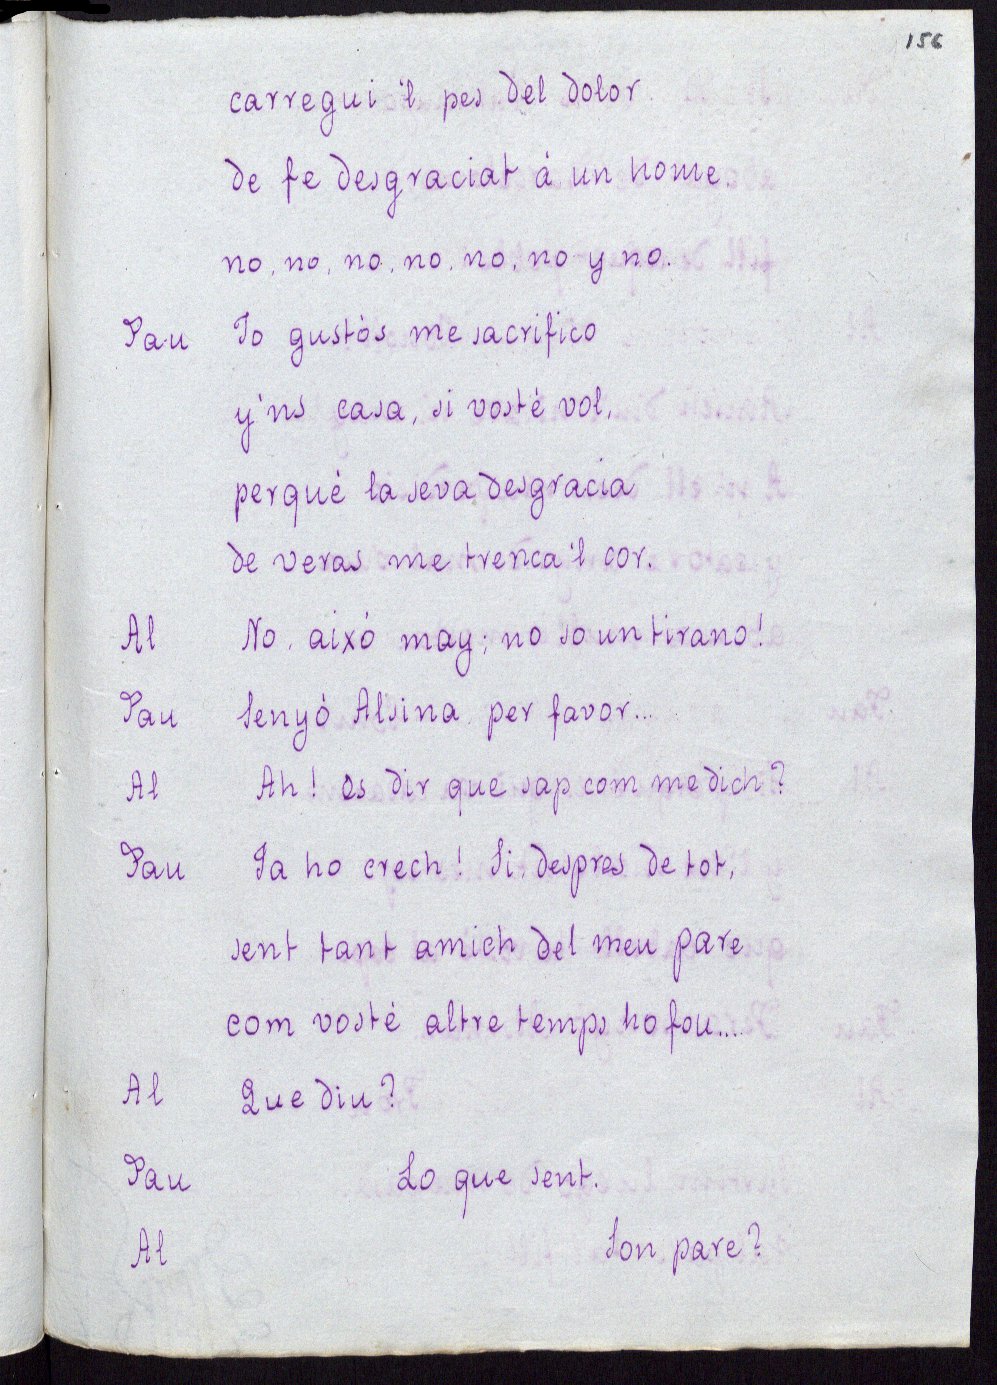 156
carregui 'l pes del dolor
de fe desgraciat á un home.
no, no, no, no, no, no y no.
Pau Jo gustós me sacrifico
y'ns casa, si vosté vol,
perqué la seva desgracia
de veras me trenca 'l cor.
Al No, aixó may; no so un tirano!
Pau Senyó Alsina, per favor...
Al Ah! es dir que sap com me dich?
Pau Ja ho crech! Si, despres de tot,
sent tant amich del meu pare
com vosté altre temps ho fou...
Al Que diu?
Pau Lo que sent.
Al Son pare?